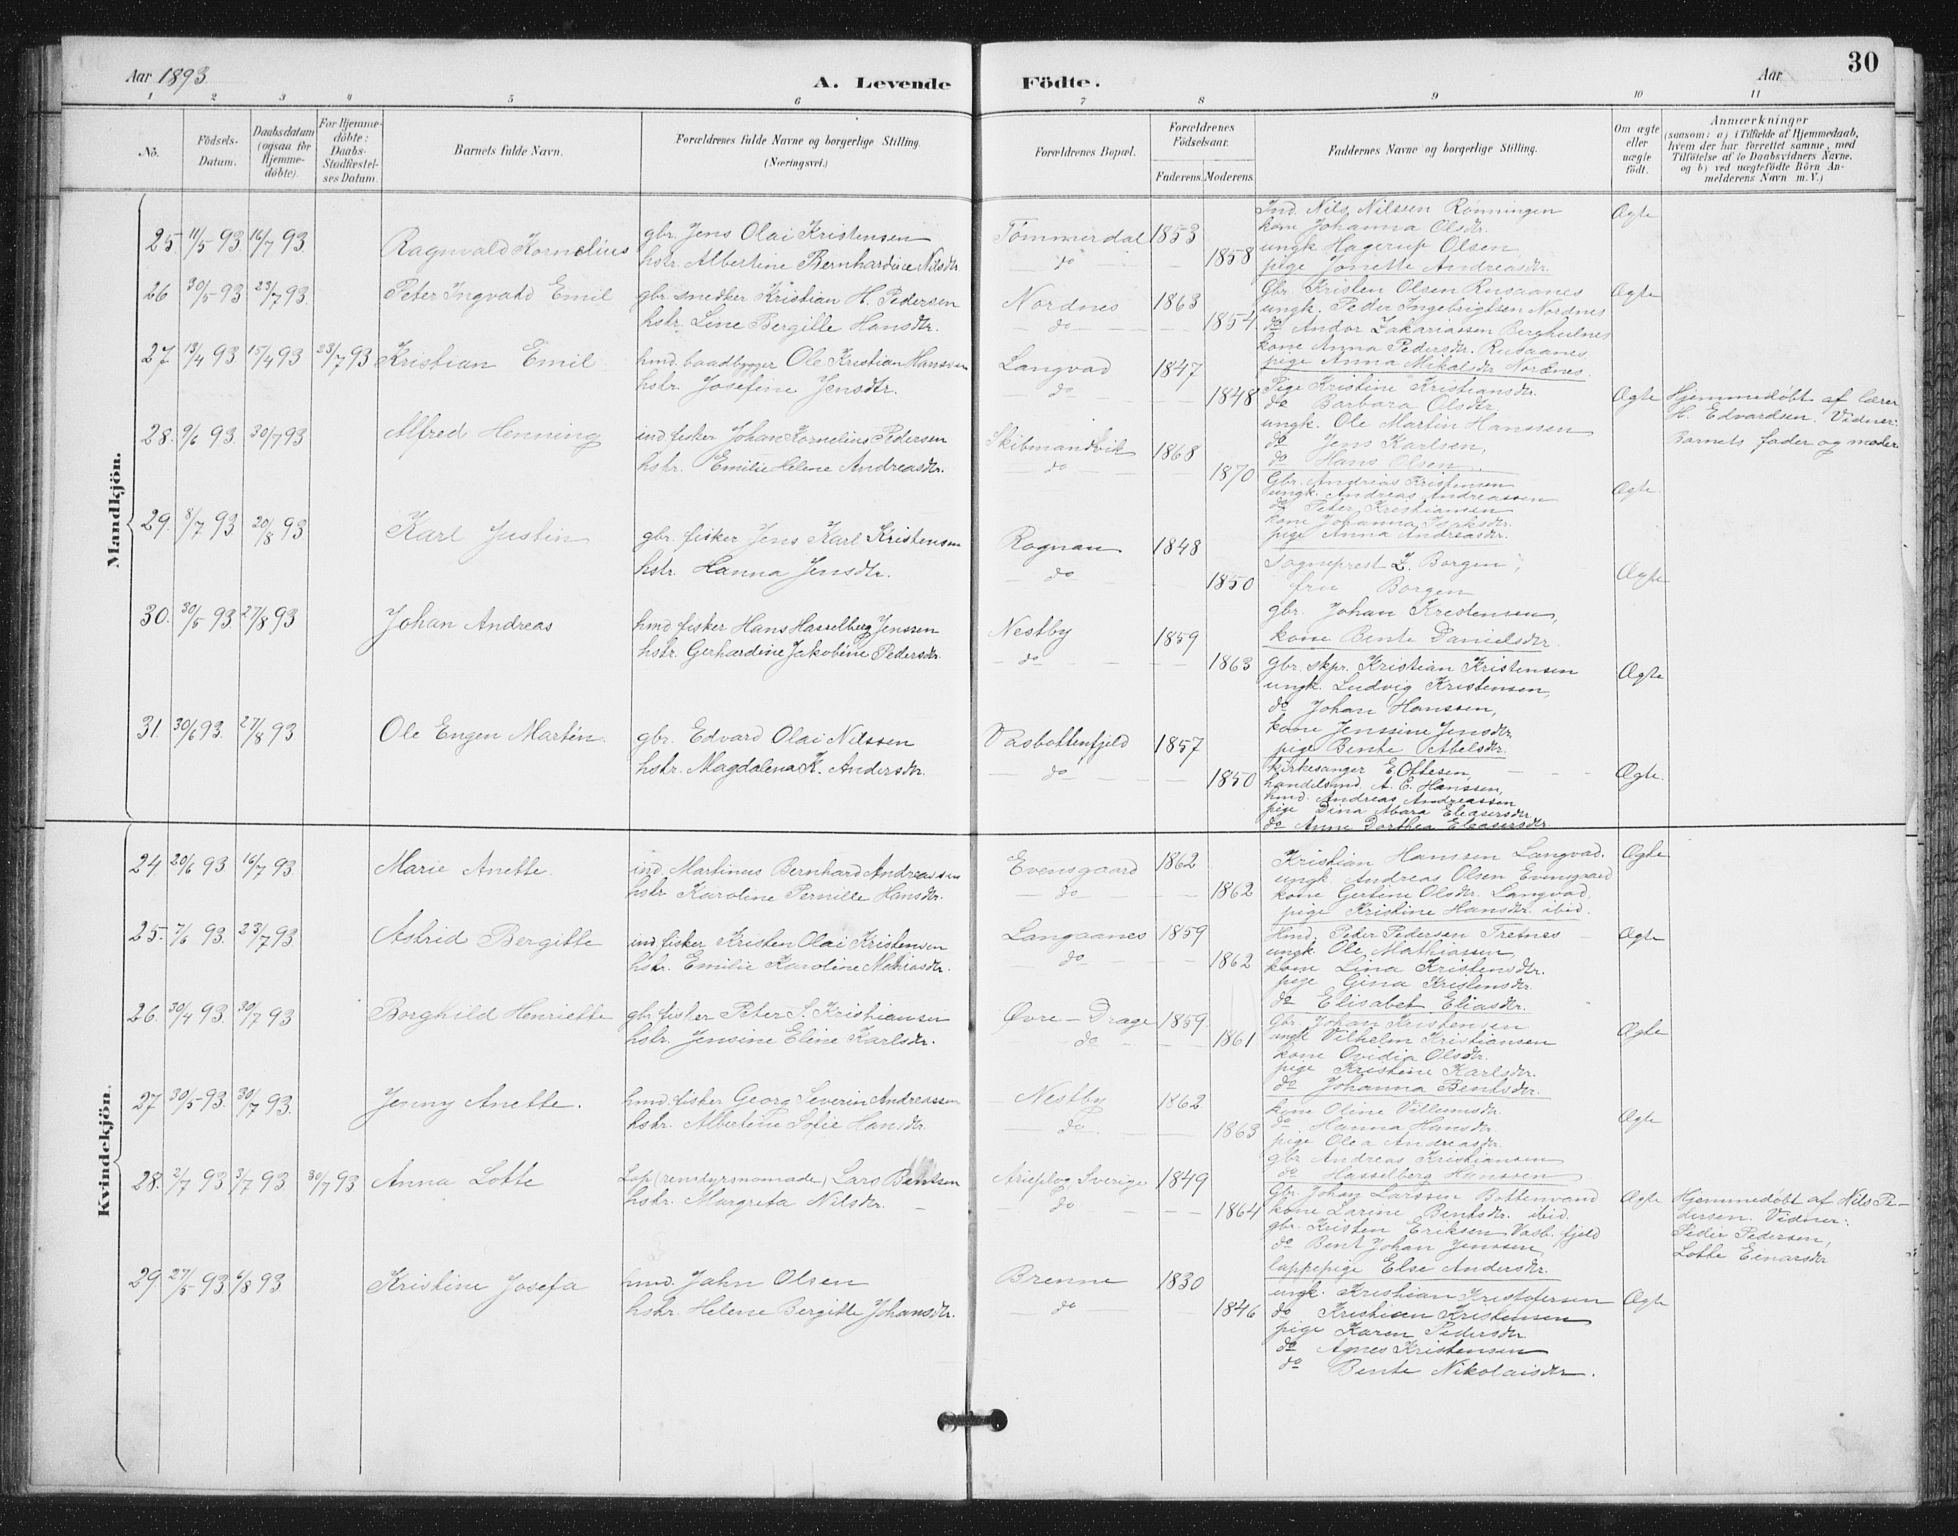 Aar 1893.
A. Levende
Födte.
Aar
30
1 2 3 4 5 6 7 8 9 10 11
No.
Födsels-
Datum.
Daabsdatum
(ogsaa for
Hjemme-
döbte).
For Hjemme-
döbte:
Daabs-
Stadfæstel-
ses Datum.
Barnets fulde Navn.
Forældrenes fulde Navne og borgerlige Stilling.
(Næringsvei.)
Forældrenes Bopæl.
Forældrenes
Födselsaar.
Faderens. Moderens.
Faddernes Navne og borgerlige Stilling.
Om ægte
eller
uægte
födt.
Anmærkninger
(saasom: a) i Tilfælde af Hjemmedaab,
hvem der har forrettet samme, med
Tilföielse af to Daabsvidners Navne,
og b) ved uægtefödte Börn An-
melderens Navn m. V.)
Mandkjön.
25 11/5 93 16/7 93 Ragnvald Kornelius
gbr. Jens Olai Kristensen
hstr. Albertine Bernhardine Nilsdtr.
Tömmerdal 1853
do 1858
Ind. Nils Nilssen Rönningen
kone Johanna Olsdtr.
ungk Hagerup Olsen
pige Jonette Andreasdtr.
Ægte
26 30/5 93 23/7 93. Peter Ingvald Emil
gbr. snedker Kristian H. Pedersen
hstr. Line Bergitte Hansdtr.
Nordnes 1863
do 1854
Gbr. Kristen Olsen Rusaanes
ungk. Peder Ingebrigtsen Nordnes
do Andor Zakariassen Berghulnes
kone Anna Pedersdtr. Rusaanes
pige Anna Mikalsdtr Nordnes.
Ægte
27. 13/4 93 15/4 93 23/7 93 Kristian Emil
hmd. baadbygger Ole Kristian Hanssen
hstr. Josefine Jensdtr.
Langvad 1847
do 1848
Pige Kristine Kristiansdtr
do Barbara Olsdtr
ungk. Ole Martin Hanssen
do Jens Karlsen,
do Hans Olsen
Ægte
Hjemmedöbt af lærer
H. Edvardsen. Vidner:
Barnets fader og moder
28. 9/6 93. 30/7 93 Alfred Henning
ind. fisker Johan Kornelius Pedersen
hstr. Emilie Helene Andreasdtr.
Skibmandvik 1868
do 1870
Gbr. Andreas Kristensen
ungk. Andreas Andreassen
do Peter Kristiansen
kone Johanna
pige Anna Andreasdtr.
Ægte
29. 8/7 93 20/8 93 Karl Justin
gbr. fisker Jens Karl Kristensen
hstr. Hanna Jensdtr.
Rognan 1848
do 1850
Sogneprest Z. Borgen,
fru Borgen
gbr. Johan Kristensen,
kone Bente Danielsdtr.
Ægte
30. 30/5 93. 27/8 93 Johan Andreas
hmd fisker Hans Hasselberg Jenssen
hstr. Gerhardine Jakobine Pedersdtr.
Nestby 1859
do 1863
gbr. skpr. Kristian Kristensen
ungk. Ludvig Kristensen,
do Johan Hanssen,
kone Jenssine Jensdtr
pige Bente Abelsdtr.
Ægte
31. 30/6 93. 27/8 93 Ole Engen Martin
gbr. Edvard Olai Nilssen
hstr. Magdalena K. Andersdtr.
Vasbottenfjeld 1857
do 1850
kirkesanger E. Ottesen,
handelsmd. A. C. Hanssen,
hmd. Andreas Andreassen
pige Dina Abara Eleasersdtr
do Anne Dorthea Eleasersdtr.
Ægte.
Kvindekjön.
24. 20/6 93 16/7 93 Marie Anette.
ind. Martinus Bernhard Andreassen
hstr Karoline Pernille Hansdtr.
Evensgaard 1862
do 1862
Kristian Hanssen Langvad.
ungk Andreas Olsen Evensgaard
kone Gertine Olsdtr. Langvad,
pige Kristine Hansdtr. ibid.
Ægte
25. 7/6 93. 23/7 93 Astrid Bergitte
ind. fisker Kristen Olai Kristensen
hstr. Emilie Karoline Mathiasdtr.
Langaanes 1859
do 1862
Hmd. Peder Pedersen Tretnes
ungk. Ole Mathiassen
kone Lina Kristensdtr.
pige Gina Kristensdtr.
do Elisabet Eliasdtr.
Ægte
26. 30/4 93. 30/7 93 Borghild Henriette
gbr fisker Peter S. Kristiansen
hstr. Jensine Eline Karlsdtr.
Övre-Drage 1859.
do 1861
Gbr. Johan Kristensen
ungk Vilhelm Kristiansen
kone Ovidia Olsdtr.
pige Kristine Karlsdtr.
do Johanna Bentsdtr.
Ægte
27 30/5 93. 30/7 93. Jenny Anette.
hmd. fisker Georg Severin Andreassen
hstr. Albertine Sofie Hansdtr.
Nestby 1862
do 1863
kone Oline Villumsdtr.
do Hanna Hansdtr.
pige Olea Andreasdtr
gbr Andreas Kristiansen
do Hasselberg Hanssen
Ægte
28. 2/7 93 3/7 93 30/7 93 Anna Lotte
Lap (rensdyrsnomade) Lars Bentsen
hstr. Margreta Nilsdtr.
Arieplog Sverige 1849
do 1864
Gbr. Johan Larssen Bottenvand
kone Larine Bentsdtr. ibid.
gbr. Kristen Eriksen Vasb.fjeld
do Bent Johan Jenssen
lappepige Else Andersdtr.
Ægte
Hjemmedöbt af Nils Pe-
dersen. Vidner:
Peder Pedersen,
Lotte Einarsdtr
29. 27/5 93. 6/8 93 Kristine Josefa
hmd. Jahn Olsen
hstr. Helene Bergitte Johansdtr.
Brenne 1830
do 1846
ungk. Kristian Kristofersen
do Kristian Kristensen
pige Karen Pedersdtr
do Agnes Kristensen
do Bente Nikolaisdtr.
Ægte